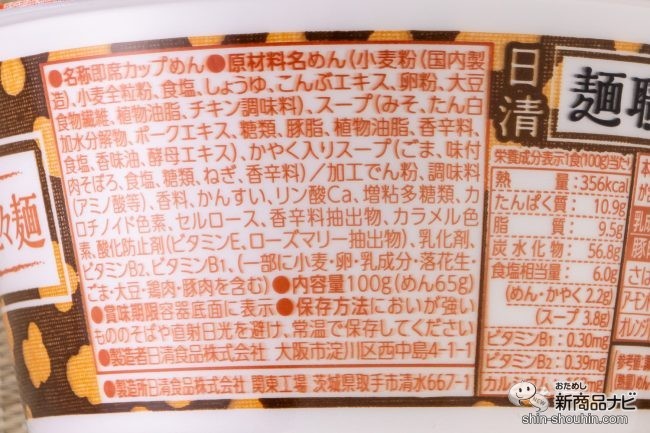 ●名称即席カップめん●原材料名めん(小麦粉(国内製
造)、小麦全粒粉、食塩、しょうゆ、こんぶエキス、卵粉、大豆
食物繊維、植物油脂、チキン調味料)、スープ(みそ、たん白
加水分解物、ポークエキス、糖類、豚脂、植物油脂、香辛料、
食塩、香味油、酵母エキス)、かやく入りスープ(ごま、味付
肉そぼろ、食塩、糖類、ねぎ、香辛料)/加工でん粉、調味料
(アミノ酸等)、香料、かんすい、リン酸Ca、増粘多糖類、カ
ロチノイド色素、セルロース、香辛料抽出物、カラメル色
素、酸化防止剤(ビタミンE、ローズマリー抽出物)、乳化剤、
ビタミンB₂、ビタミンB₁、(一部に小麦・卵・乳成分・落花生・
ごま・大豆・鶏肉・豚肉を含む)●内容量100g(めん65g)
●賞味期限容器底面に表示●保存方法においが強い
もののそばや直射日光を避け、常温で保存してください
●製造者日清食品株式会社 大阪市淀川区西中島4-1-1
●製造所日清食品株式会社 関東工場 茨城県取手市清水667-1
日清
麺職
麺
栄養成分表示1食(100g)当たり
熱量:356kcal
たんぱく質:10.9g
脂質:9.5g
炭水化物:56.8g
食塩相当量:6.0g
(めん・かやく 2.2g)
(スープ 3.8g)
ビタミンB₁:0.30mg
ビタミンB₂:0.39mg
カルシ
さば
アーモン
オレンジ
おためし
新商品ナビ
shin-shouhin.com